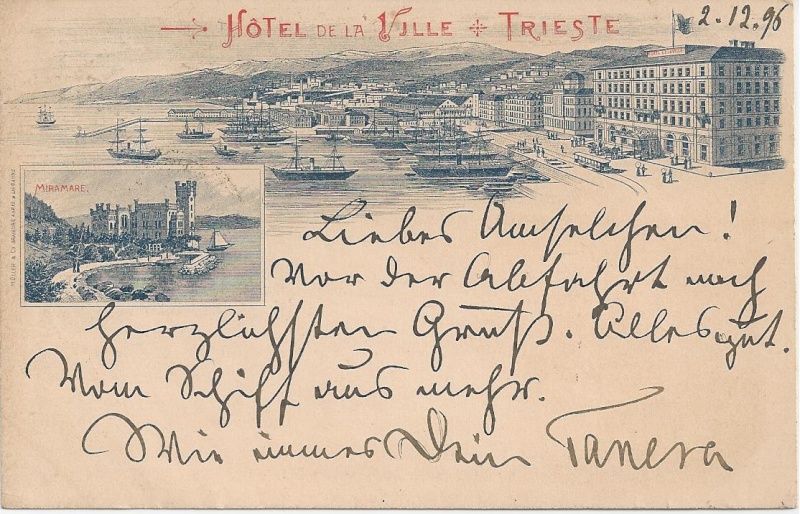 HÔTEL DE LA VILLE TRIESTE
2.12.96
MIRAMARE.
Liebes Amselchen!
Vor der Abfahrt noch
herzlichsten Gruß. Alles gut.
Vom Schiff aus mehr.
Wie immer Dein Tanera